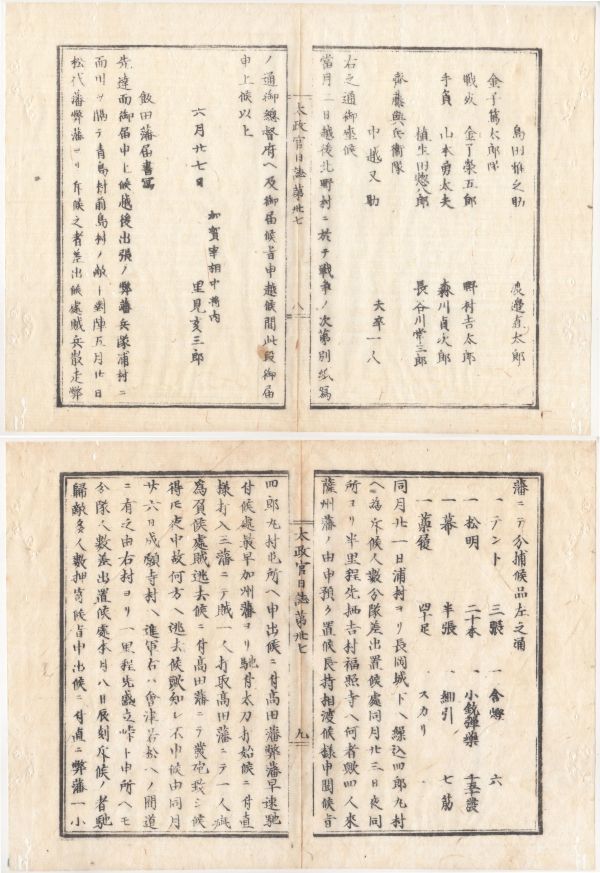 島田惟之助 渡邊直太郎
金子篤太郎隊
戦死 金子榮五郎 野村吉太郎
手負 山本勇太夫 森川貞次郎
植生田惣八郎 長谷川常三郎
齊藤與兵衛隊
中越又助 大卒一人
右之通御座候
當月二日越後北野村ニ於テ戦争ノ次第別紙寫
太政官日誌第卅七 八
ノ通御總督府ヘ及御届候旨申越候間此段御届
申上候以上
六月廿七日 加賀宰相中将内
里見亥三郎
飯田藩届書寫
先達而御届申上候越後出張ノ弊藩兵隊浦村ニ
而川ヲ隔テ青島村前島村ノ敵ト對陣五月廿日
松代藩弊藩ヨリ斥候之者差出候處賊兵散走弊
藩ニテ分捕候品左之通
一テント 三張 一合羽 六
一松明 二十本 一小銃彈藥 千五發
一幕 半張 一細引 七筋
一草鞋 四十足 スカリ
同月廿一日浦村ヨリ長岡城下ヘ繰込四郎丸村
ヘ為斥候人數分隊差出置候處同月廿三日夜同
所ヨリ半里程先栖吉村福照寺ヘ何者歟四人來
薩州藩ノ由申預ケ置候長持相渡候様申聞候旨
太政官日誌第卅七 九
四郎丸村屯所ヘ申出候ニ付高田藩弊藩早速馳
付候處最早加州藩ヨリ馳付太刀打始候ニ付直
様打入三藩ニテ賊一人打取高田藩ニテ一人疵
為負候處賊逃去候ニ付高田藩ニテ發砲致シ候
得圧夜中故何方ヘ逃去候歟知レ不申候由同月
廿六日成願寺村ヘ進軍右ハ會津若松ヘノ間道
ニ有之由右村ヨリ一里程先盛立峠ト申所ヘモ
分隊人數差出置候處本月八日辰刻斥候ノ者馳
歸敵多人數押寄候旨申出候ニ付直ニ弊藩一小